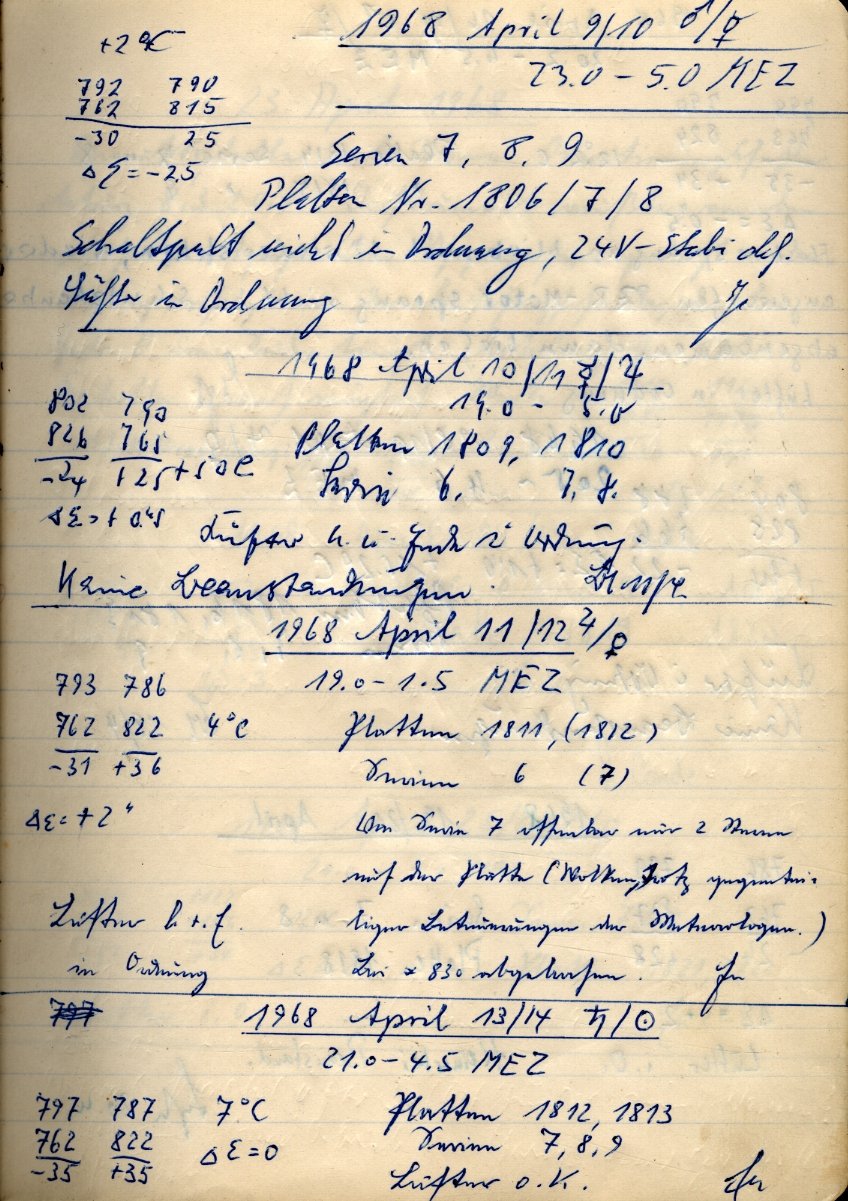 +2°C
1968 April 9/10 ♂/☿
23.0 – 5.0 MEZ
792 790
762 815
-30 25
Δε = -2.5
Serien 7, 8, 9
Platten Nr. 1806/7/8
Schaltpult nicht in Ordnung, 24V-Stabi def.
Lüfter in Ordnung
1968 April 10/11 ☿/♃
19.0 – 5.0
802 790
826 765
-24 +25 +5°C
Platten 1809, 1810
Serie 6, 7, 8.
Lüfter h. u. Ende i Ordnung.
Keine Beanstandungen.
1968 April 11/12 ♃/♀
19.0 – 1.5 MEZ
793 786
762 822 4°C
-31 +36
Platten 1811, (1812)
Serien 6 (7)
Δε = +2"
Von Serie 7 offenbar nur 2 Sterne
auf der Platte (Wolken, trotz gegentei-
Lüfter h. + f. liger Beteuerungen der Meteorologen.)
in Ordnung Bei * 830 abgebrochen.
797
1968 April 13/14 ♄/☉
21.0 – 4.5 MEZ
797 787 7°C
762 822 Δε = 0
-35 +35
Platten 1812, 1813
Serien 7, 8, 9
Lüfter o.K.